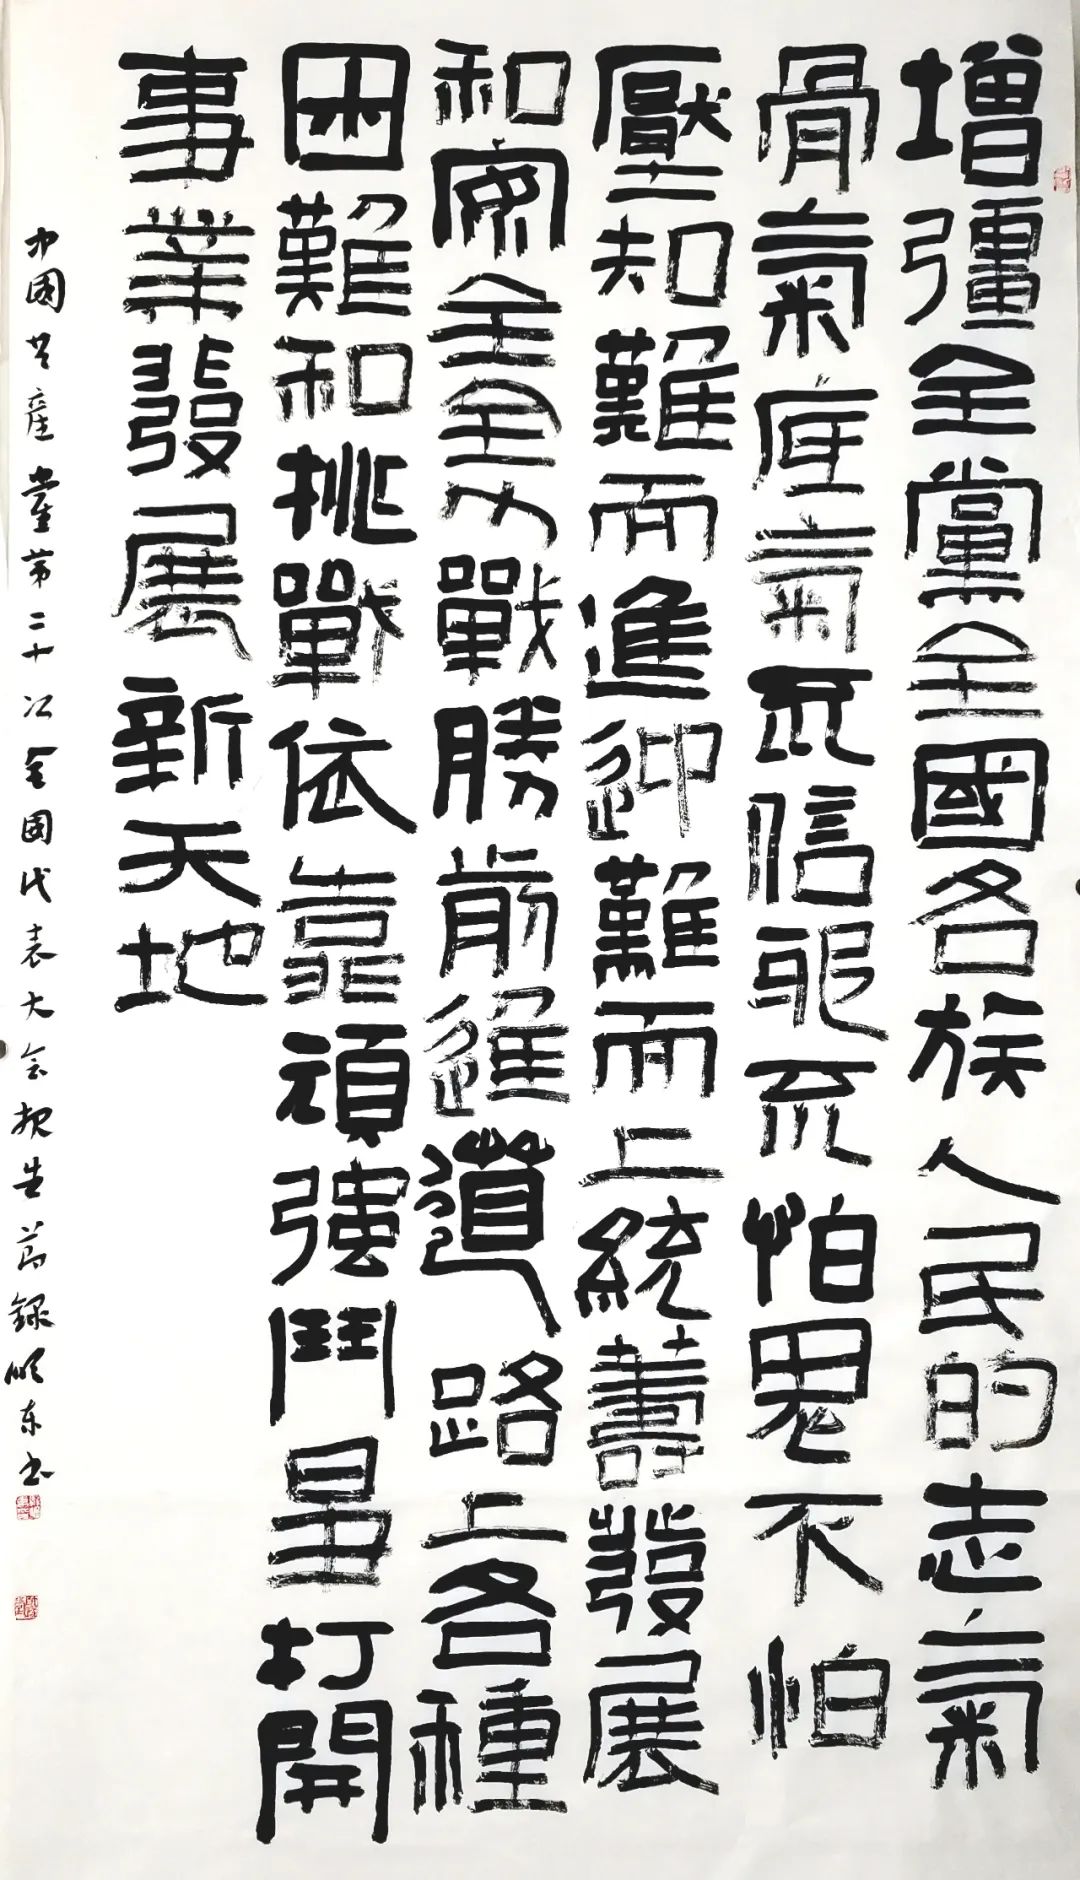 增彊全黨全國各族人民的志氣
骨氣底氣不信邪不怕鬼不怕
壓知難而進迎難而上統籌發展
和安全全力戰勝前進道路上各種
困難和挑戰依靠頑強鬥爭打開
事業發展新天地
中國共產黨第二十次全國代表大会报告節錄顺东书